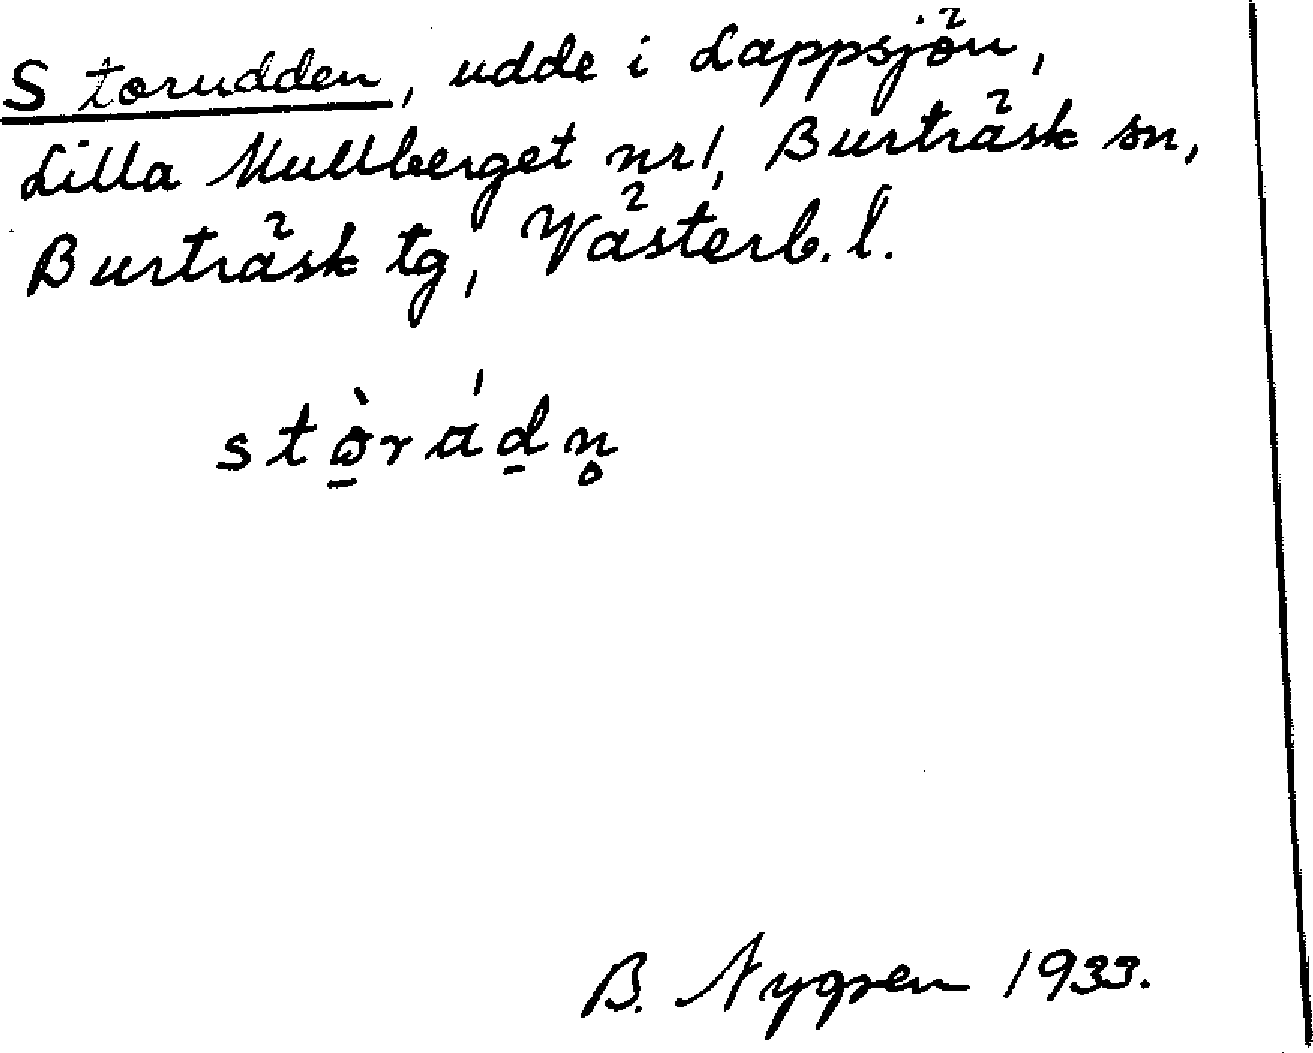 Storudden, udde i Lappsjön,
Lilla Mullberget nr 1, Burträsk sn,
Burträsk tg, Västerb. l.
B. Nygren 1933.